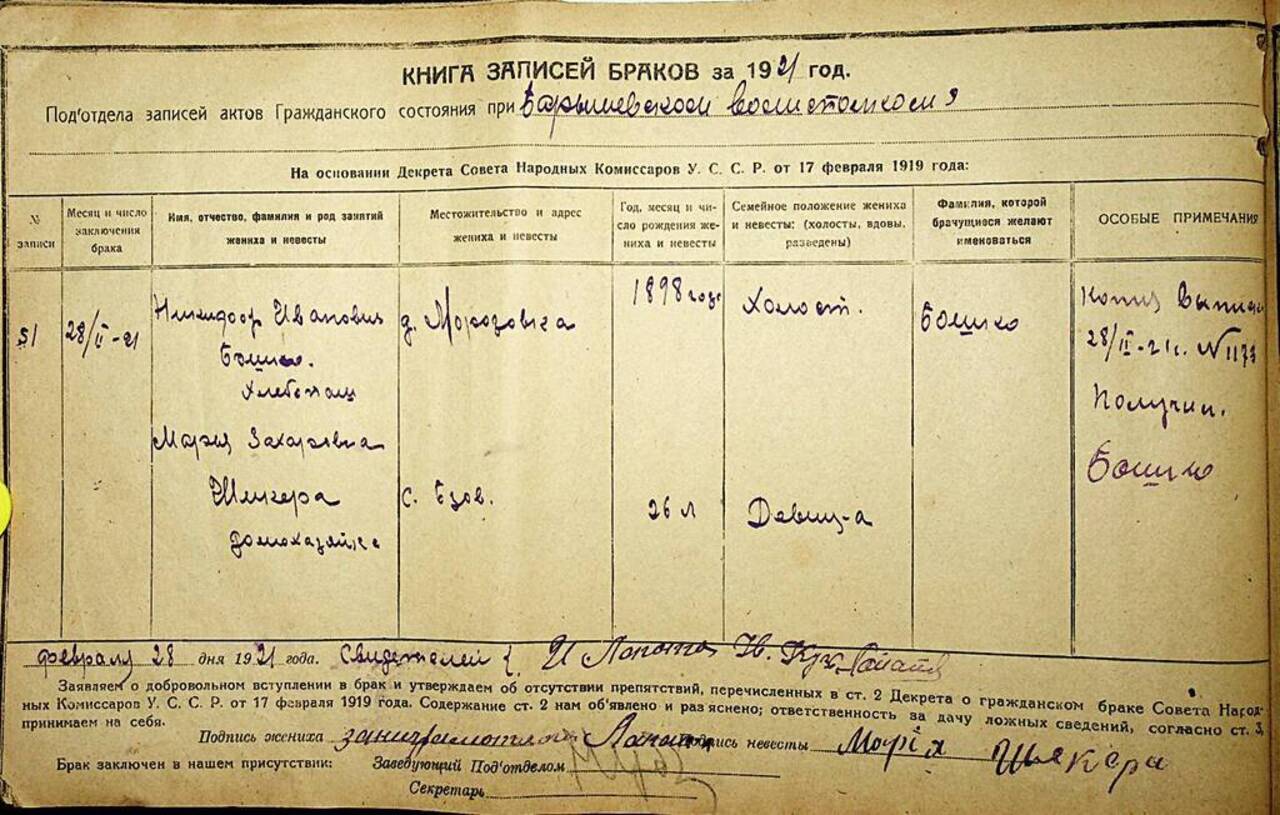 КНИГА ЗАПИСЕЙ БРАКОВ за 1921 год.
Под'отдела записей актов Гражданского состояния при Барышевском
На основании Декрета Совета Народных Комиссаров У. С. С. Р. от 17 февраля 1919 года:
№ записи
Месяц и число заключения брака
Имя, отчество, фамилия и род занятий жениха и невесты
Местожительство и адрес жениха и невесты
Год, месяц и число рождения жениха и невесты
Семейное положение жениха и невесты: (холосты, вдовы, разведены)
Фамилия, которой брачущиеся желают именоваться
ОСОБЫЕ ПРИМЕЧАНИЯ
51
28/II-21
Никифор Иванович
Бошко.
Хлебопаш
д. Морозовка
1898 года
Холост.
Бошко
Копия выписи
28/II-21г. N 1173
Получил.
Бошко
Мария Захарьевна
Шикера
домохазяйка
с. Бзов.
26 л
Девица
февраля 28 дня 1921 года. Свидетелей И Лопата Н.
Заявляем о добровольном вступлении в брак и утверждаем об отсутствии препятствий, перечисленных в ст. 2 Декрета о гражданском браке Совета Народ-
ных Комиссаров У. С. С. Р. от 17 февраля 1919 года. Содержание ст. 2 нам об'явлено и раз'яснено; ответственность за дачу ложных сведений, согласно ст. 3,
принимаем на себя.
Подпись жениха Лопата Подпись невесты Марія Шикера
Брак заключен в нашем присутствии: Заведующий Под'отделом
Секретарь